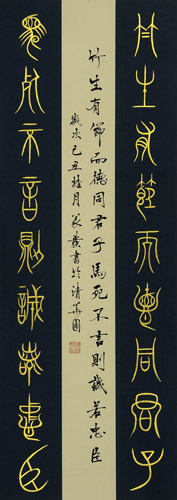 竹生有節而德同君子
竹生有節而德同君子馬死不言則誠若忠臣
歲次己丑桂月書於清華園
馬死不言則誠若忠臣